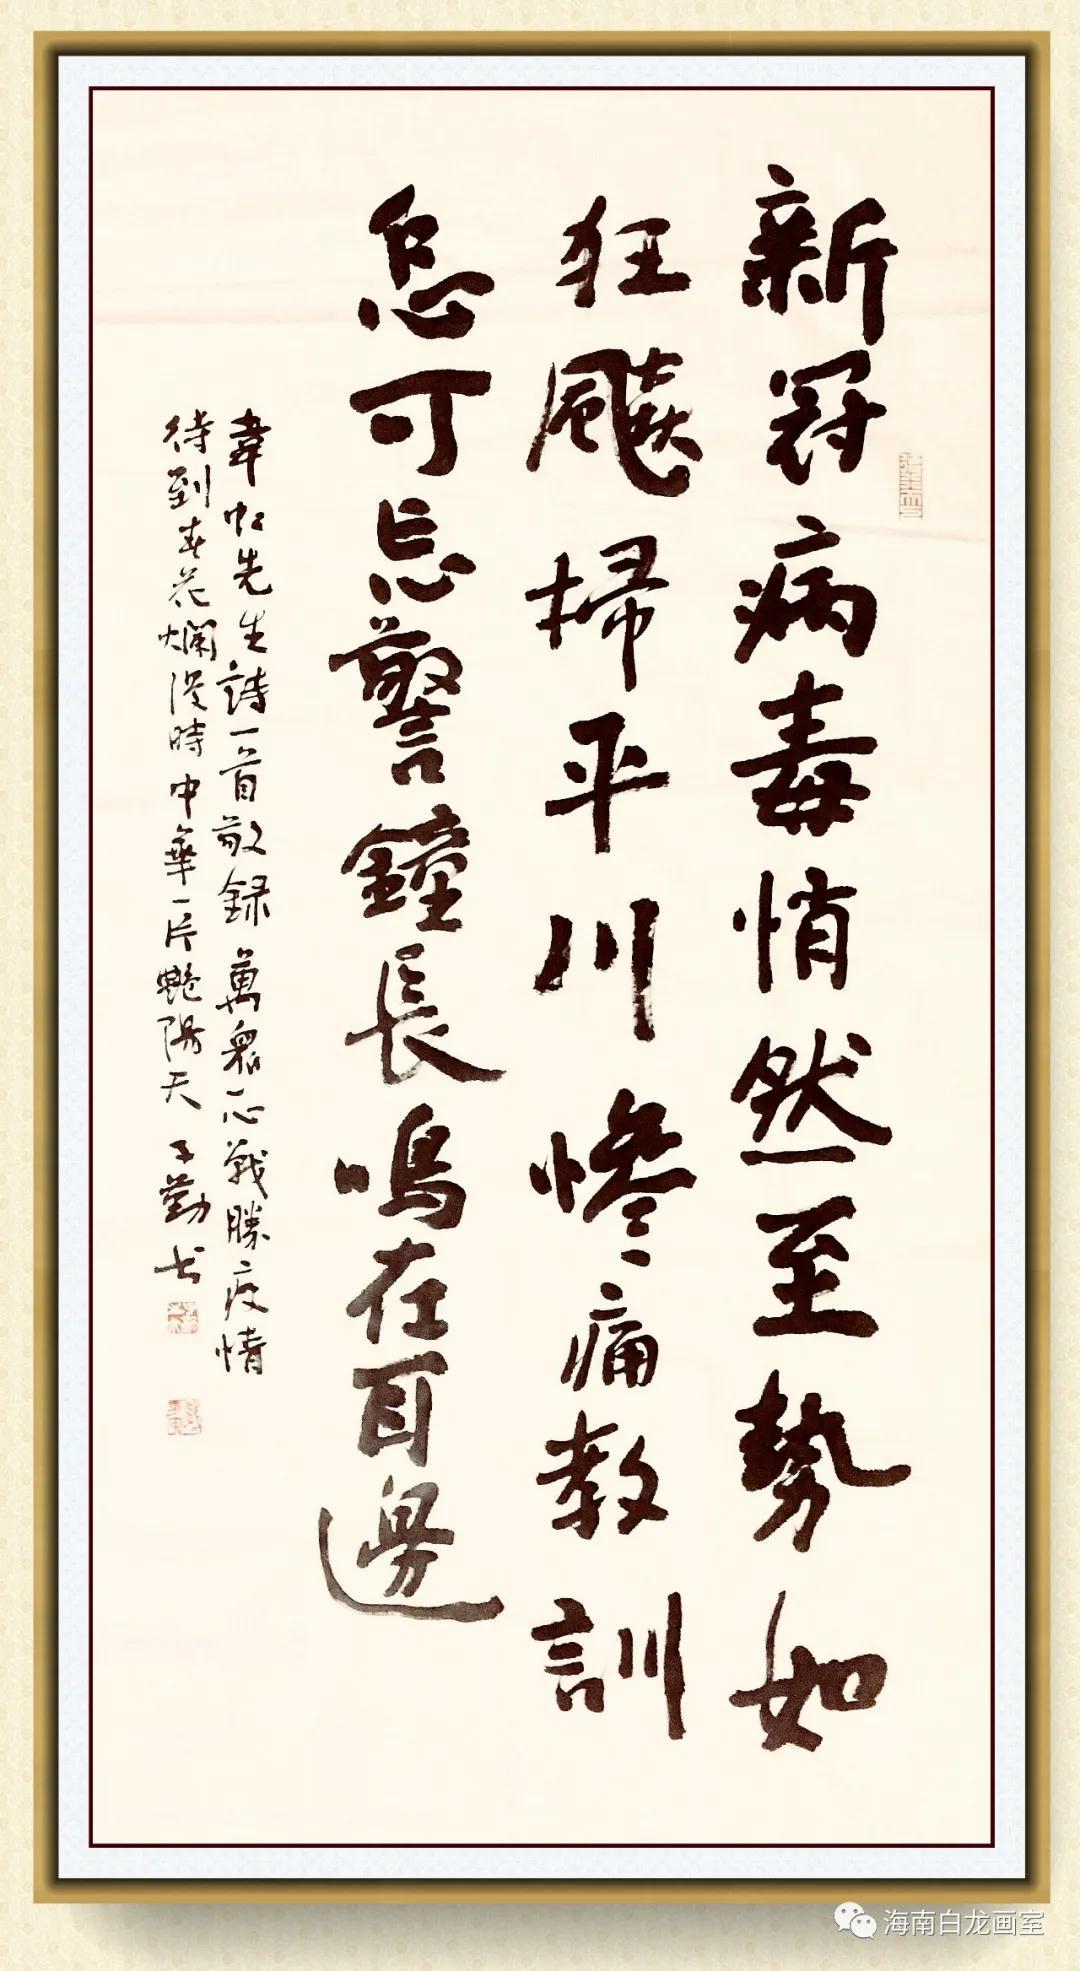 新冠病毒悄然至勢如
狂飈掃平川慘痛教訓
怎可忘警鐘長鳴在耳邊
韋虹先生詩一首敬録萬衆一心戰勝疫情
待到春花爛漫時中華一片艷陽天子勤书
海南白龙画室